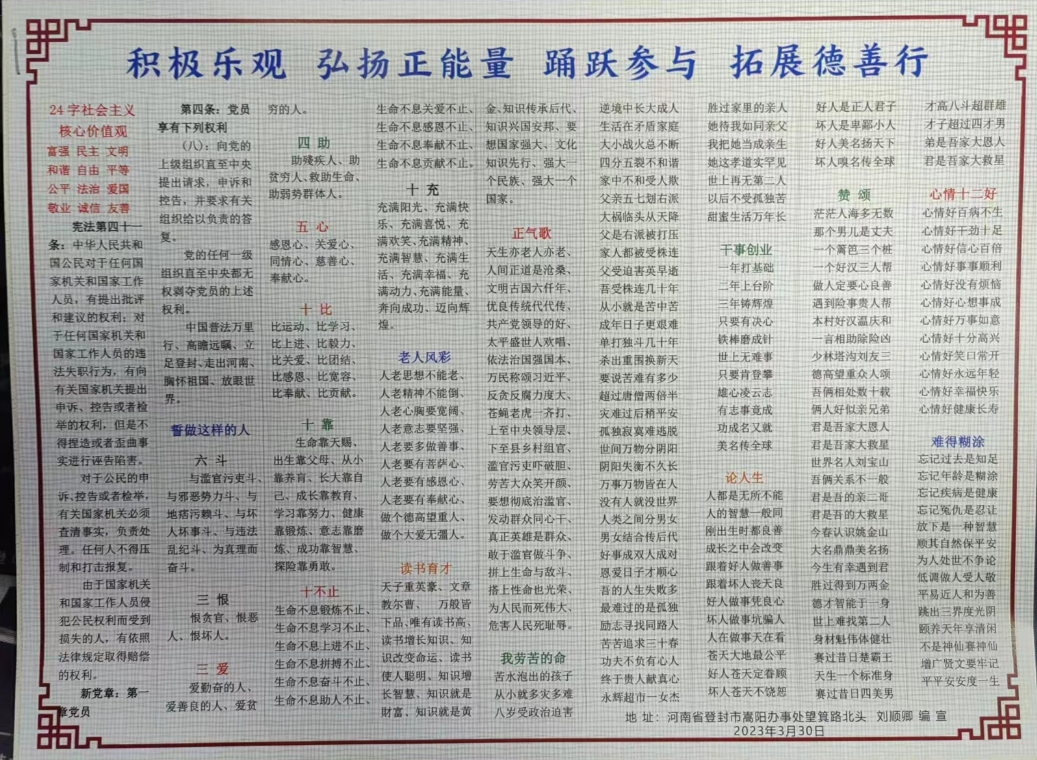 积极乐观 弘扬正能量 踊跃参与 拓展德善行
24字社会主义
核心价值观
富强 民主 文明
和谐 自由 平等
公平 法治 爱国
敬业 诚信 友善
宪法第四十一
条：中华人民共和
国公民对于任何国
家机关和国家工作
人员，有提出批评
和建议的权利；对
于任何国家机关和
国家工作人员的违
法失职行为，有向
有关国家机关提出
申诉、控告或者检
举的权利，但是不
得捏造或者歪曲事
实进行诬告陷害。
对于公民的申
诉、控告或者检举，
有关国家机关必须
查清事实，负责处
理。任何人不得压
制和打击报复。
由于国家机关
和国家工作人员侵
犯公民权利而受到
损失的人，有依照
法律规定取得赔偿
的权利。
新党章：第一
章党员
第四条：党员
享有下列权利
（八）：向党的
上级组织直至中央
提出请求，申诉和
控告，并要求有关
组织给以负责的答
复。
党的任何一级
组织直至中央都无
权剥夺党员的上述
权利。
中国普法万里
行、高瞻远瞩、立
足登封、走出河南、
胸怀祖国、放眼世
界。
誓做这样的人
六 斗
与滥官污吏斗、
与邪恶势力斗、与
地痞污赖斗、与坏
人坏事斗、与违法
乱纪斗、为真理而
奋斗。
三 恨
恨贪官、恨恶
人、恨坏人。
三 爱
爱勤奋的人、
爱善良的人、爱贫
穷的人。
四 助
助残疾人、助
贫穷人、救助生命、
助弱势群体人。
五 心
感恩心、关爱心、
同情心、慈善心、
奉献心。
十 比
比运动、比学习、
比上进、比毅力、
比关爱、比团结、
比感恩、比宽容、
比奉献、比贡献。
十 靠
生命靠天赐、
出生靠父母、从小
靠养育、长大靠自
己、成长靠教育、
学习靠努力、健康
靠锻炼、意志靠磨
炼、成功靠智慧、
探险靠勇敢。
十不止
生命不息锻炼不止、
生命不息学习不止、
生命不息上进不止、
生命不息拼搏不止、
生命不息奋斗不止、
生命不息助人不止、
生命不息关爱不止、
生命不息感恩不止、
生命不息奉献不止、
生命不息贡献不止。
十 充
充满阳光、充满快
乐、充满喜悦、充
满欢笑、充满精神、
充满智慧、充满生
活、充满幸福、充
满动力、充满能量、
奔向成功、迈向辉
煌。
老人风彩
人老思想不能老、
人老精神不能倒、
人老心胸要宽阔、
人老意志要坚强、
人老要多做善事、
人老要有菩萨心、
人老要有感恩心、
人老要有奉献心、
做个德高望重人、
做个大爱无彊人。
读书育才
天子重英豪、文章
教尔曹、 万般皆
下品、唯有读书高、
读书增长知识、知
识改变命运、读书
使人聪明、知识增
长智慧、知识就是
财富、知识就是黄
金、知识传承后代、
知识兴国安邦、要
想国家强大、文化
知识先行、强大一
个民族、强大一个
国家。
正气歌
天生亦老人亦老、
人间正道是沧桑、
文明古国六仟年、
优良传统代代传、
共产党领导的好、
太平盛世人欢唱、
依法治国强国本、
万民称颂习近平、
反贪反腐力度大、
苍蝇老虎一齐打、
上至中央领导层、
下至县乡村组官、
滥官污吏吓破胆、
劳苦大众笑开颜、
要想彻底治滥官、
发动群众同心干、
真正英雄是群众、
敢于滥官做斗争、
拼上生命与敌斗、
搭上性命也光荣、
为人民而死伟大、
危害人民死耻辱。
我劳苦的命
苦水泡出的孩子
从小就多灾多难
八岁受政治迫害
逆境中长大成人
生活在矛盾家庭
大小战火总不断
四分五裂不和谐
家中不和受人欺
父亲五七划右派
大祸临头从天降
父是右派被打压
家人都被受株连
父受迫害英早逝
吾受株连几十年
从小就是苦中苦
成年日子更艰难
单打独斗几十年
杀出重围换新天
要说苦难有多少
超过唐僧两倍半
灾难过后稍平安
孤独寂寞难逃脱
世间万物分阴阳
阴阳失衡不久长
万事万物皆在人
没有人就没世界
人类之间分男女
男女结合传后代
好事成双人成对
恩爱日子才顺心
吾的人生失败多
最难过的是孤独
励志寻找同路人
苦苦追求三十春
功夫不负有心人
终于贵人献真心
永辉超市一女杰
胜过家里的亲人
她待我如同亲父
我把她当成亲生
她这孝道实罕见
世上再无第二人
以后不受孤独苦
甜蜜生活万年长
干事创业
一年打基础
二年上台阶
三年铸辉煌
只要有决心
铁棒磨成针
世上无难事
只要肯登攀
雄心凌云志
有志事竟成
功成名又就
美名传全球
论人生
人都是无所不能
人的智慧一般同
刚出生时都良善
成长之中会改变
跟着好人做善事
跟着坏人丧天良
好人做事凭良心
坏人做事坑骗人
人在做事天在看
苍天大地最公平
好人苍天定眷顾
坏人苍天不饶恕
好人是正人君子
坏人是卑鄙小人
好人美名扬天下
坏人嗅名传全球
赞 颂
茫茫人海多无数
那个男儿是丈夫
一个篱笆三个桩
一个好汉三人帮
做人定要心良善
遇到险事贵人帮
本村好汉温庆和
一言相助除险凶
少林塔沟刘友三
德高望重众人颂
吾俩相处数十载
俩人好似亲兄弟
君是吾家大恩人
君是吾家大救星
世界名人刘宝山
吾俩关系不一般
君是吾的亲二哥
君是吾的大救星
今春认识姚金山
大名鼎鼎美名扬
今生有幸遇到君
胜过得到万两金
德才智能于一身
世上难找第二人
身材魁伟体健壮
赛过昔日楚霸王
天生一个标准身
赛过昔日四美男
才高八斗超群雄
才子超过四才男
弟是吾家大恩人
君是吾家大救星
心情十二好
心情好百病不生
心情好干劲十足
心情好信心百倍
心情好事事顺利
心情好没有烦恼
心情好心想事成
心情好万事如意
心情好十分高兴
心情好笑口常开
心情好永远年轻
心情好幸福快乐
心情好健康长寿
难得糊涂
忘记过去是知足
忘记年龄是糊涂
忘记疾病是健康
忘记冤仇是忍让
放下是一种智慧
顺其自然保平安
为人处世不争论
低调做人受人敬
平易近人和为善
跳出三界度光阴
颐养天年享清闲
不是神仙赛神仙
增广贤文要牢记
平平安安度一生
地 址：河南省登封市嵩阳办事处望箕路北头 刘顺卿 编 宣
2023年3月30日